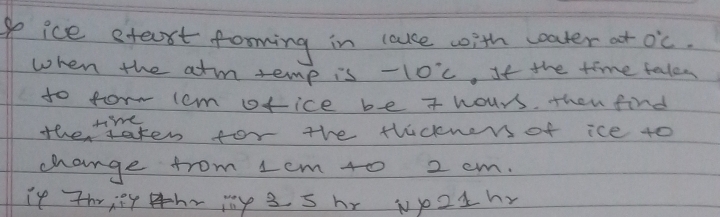 ice start forming in lake with water at 0°c.
when the atm temp is -10°c, If the time taken
to form 1cm of ice be 7 hours. then find
the time taken for the thickness of ice to
change from 1 cm to 2 cm.
i) 7hr, ii) hr iii) 3.5 hr iv) 21 hr